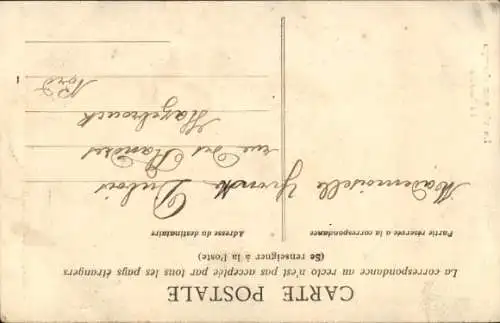 CARTE POSTALE
La correspondance au recto n'est pas acceptée par tous les pays étrangers
(Se renseigner à la Poste)
Partie réservée à la correspondance
Adresse du destinataire
Mademoiselle Yvonne Dubois
rue des Flandres
Hazebrouck
Nord